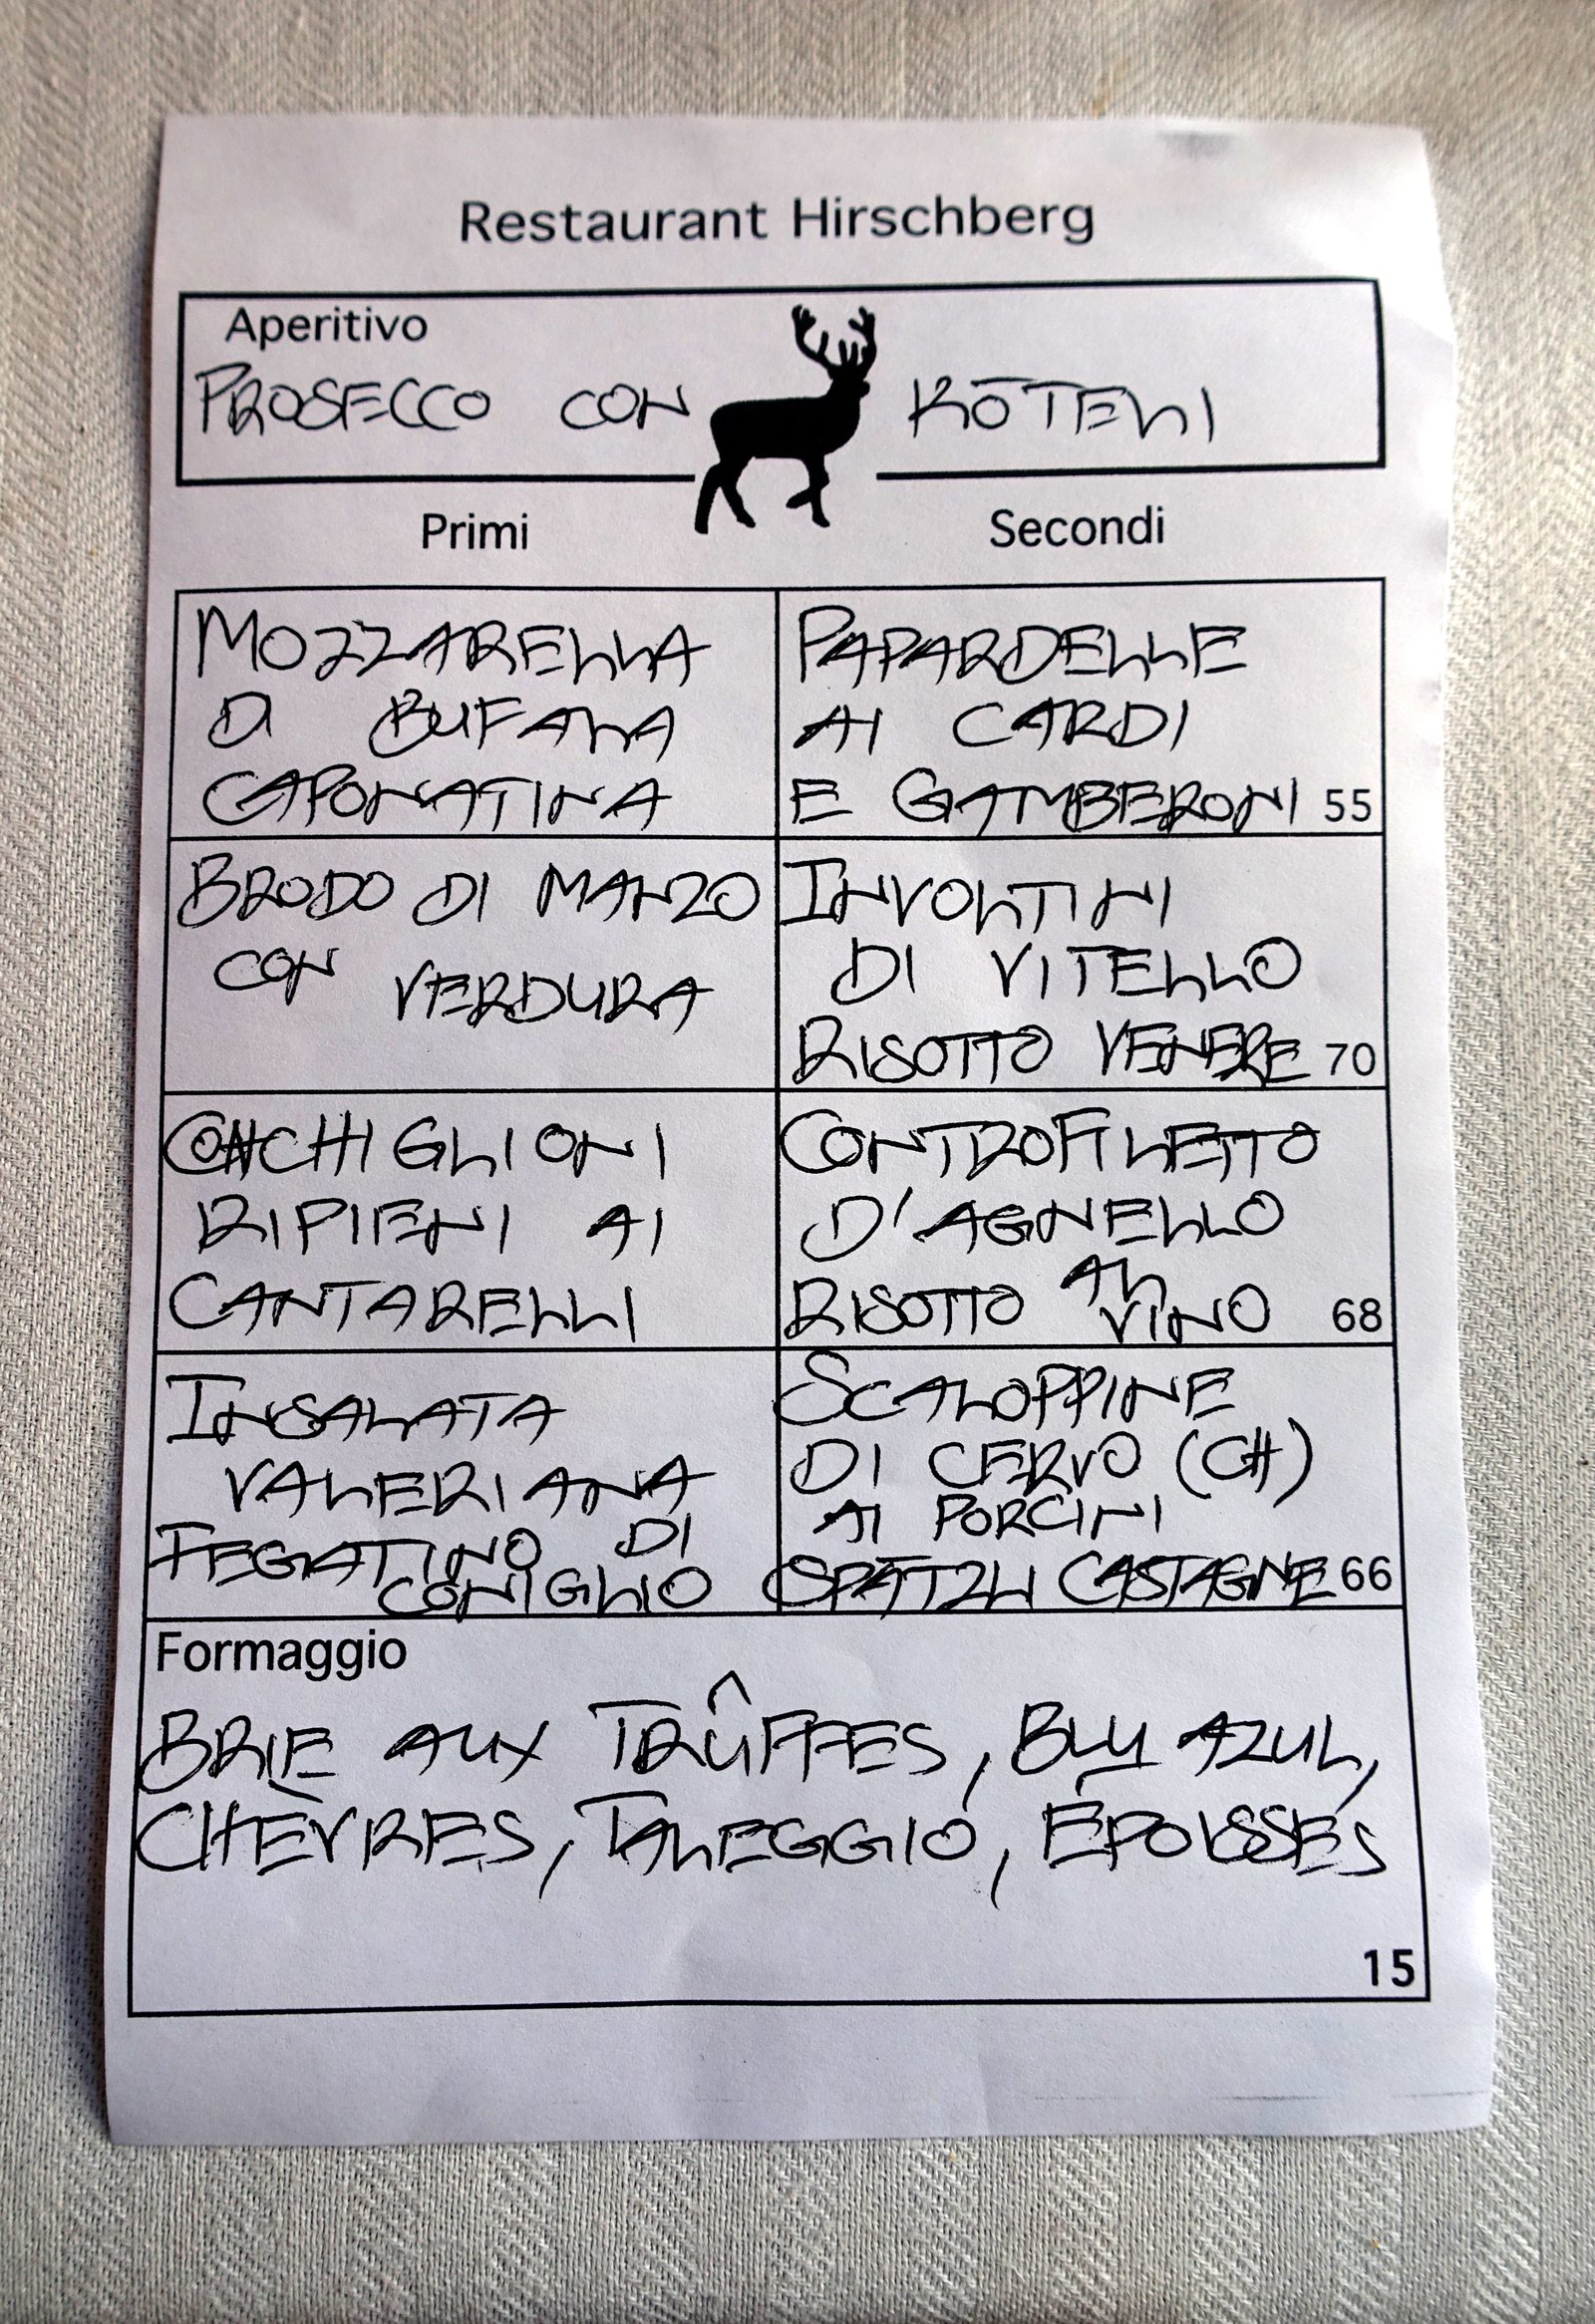 Restaurant Hirschberg
Aperitivo
PROSECCO CON RÖTELI
Primi
Secondi
MOZZARELLA
DI BUFALA
CAPONATINA
PAPARDELLE
AI CARDI
E GAMBERONI 55
BRODO DI MANZO
CON VERDURA
INVOLTINI
DI VITELLO
RISOTTO VENERE 70
CONCHIGLIONI
RIPIENI AI
CANTARELLI
CONTROFILETTO
D'AGNELLO
RISOTTO AL VINO 68
INSALATA
VALERIANA
FEGATINO DI
CONIGLIO
SCALOPPINE
DI CERVO (CH)
AI PORCINI
SPÄTZLI CASTAGNE 66
Formaggio
BRIE AUX TRÛFFES, BLU AZUL,
CHÈVRES, TALEGGIO, ÉPOISSES
15